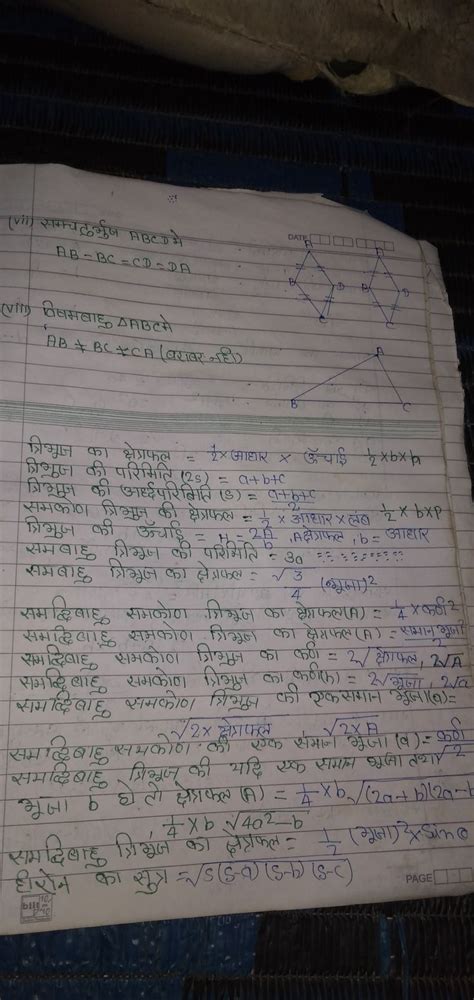 DATE
(vii) समचतुर्भुज ABCD में
AB = BC = CD = DA
A
B D
C
A
B D
C
(viii) विषमबाहु △ABC में
AB ≠ BC ≠ CA (बराबर नहीं)
A
B C
त्रिभुज का क्षेत्रफल = 1/2 × आधार × ऊँचाई 1/2 × b × h
त्रिभुज की परिमिति (2s) = a+b+c
त्रिभुज की अर्धपरिमिति (s) = a+b+c / 2
समकोण त्रिभुज की क्षेत्रफल = 1/2 × आधार × लंब 1/2 × b × P
त्रिभुज की ऊँचाई = H = 2A/b, A क्षेत्रफल, b = आधार
समबाहु त्रिभुज की परिमिति = 3a
समबाहु त्रिभुज का क्षेत्रफल = √3/4 (भुजा)²
समद्विबाहु समकोण त्रिभुज का क्षेत्रफल (A) = 1/4 × कर्ण²
समद्विबाहु समकोण त्रिभुज का क्षेत्रफल (A) = समान भुजा² / 2
समद्विबाहु समकोण त्रिभुज का कर्ण = 2√क्षेत्रफल, 2√A
समद्विबाहु समकोण त्रिभुज का कर्ण(h) = 2√भुजा, 2√a
समद्विबाहु समकोण त्रिभुज की एक समान भुजा (a) =
√2× क्षेत्रफल √2×A
समद्विबाहु समकोण की एक समान भुजा (a) = कर्ण / √2
समद्विबाहु त्रिभुज की यदि एक समान भुजा तथा
भुजा b हो तो क्षेत्रफल (A) = 1/4 × b √(2a+b)(2a-b
1/4 × b √4a²-b
समद्विबाहु त्रिभुज का क्षेत्रफल = 1/2 (भुजा)² × sin θ
हीरोन का सूत्र = √s(s-a)(s-b)(s-c)
PAGE